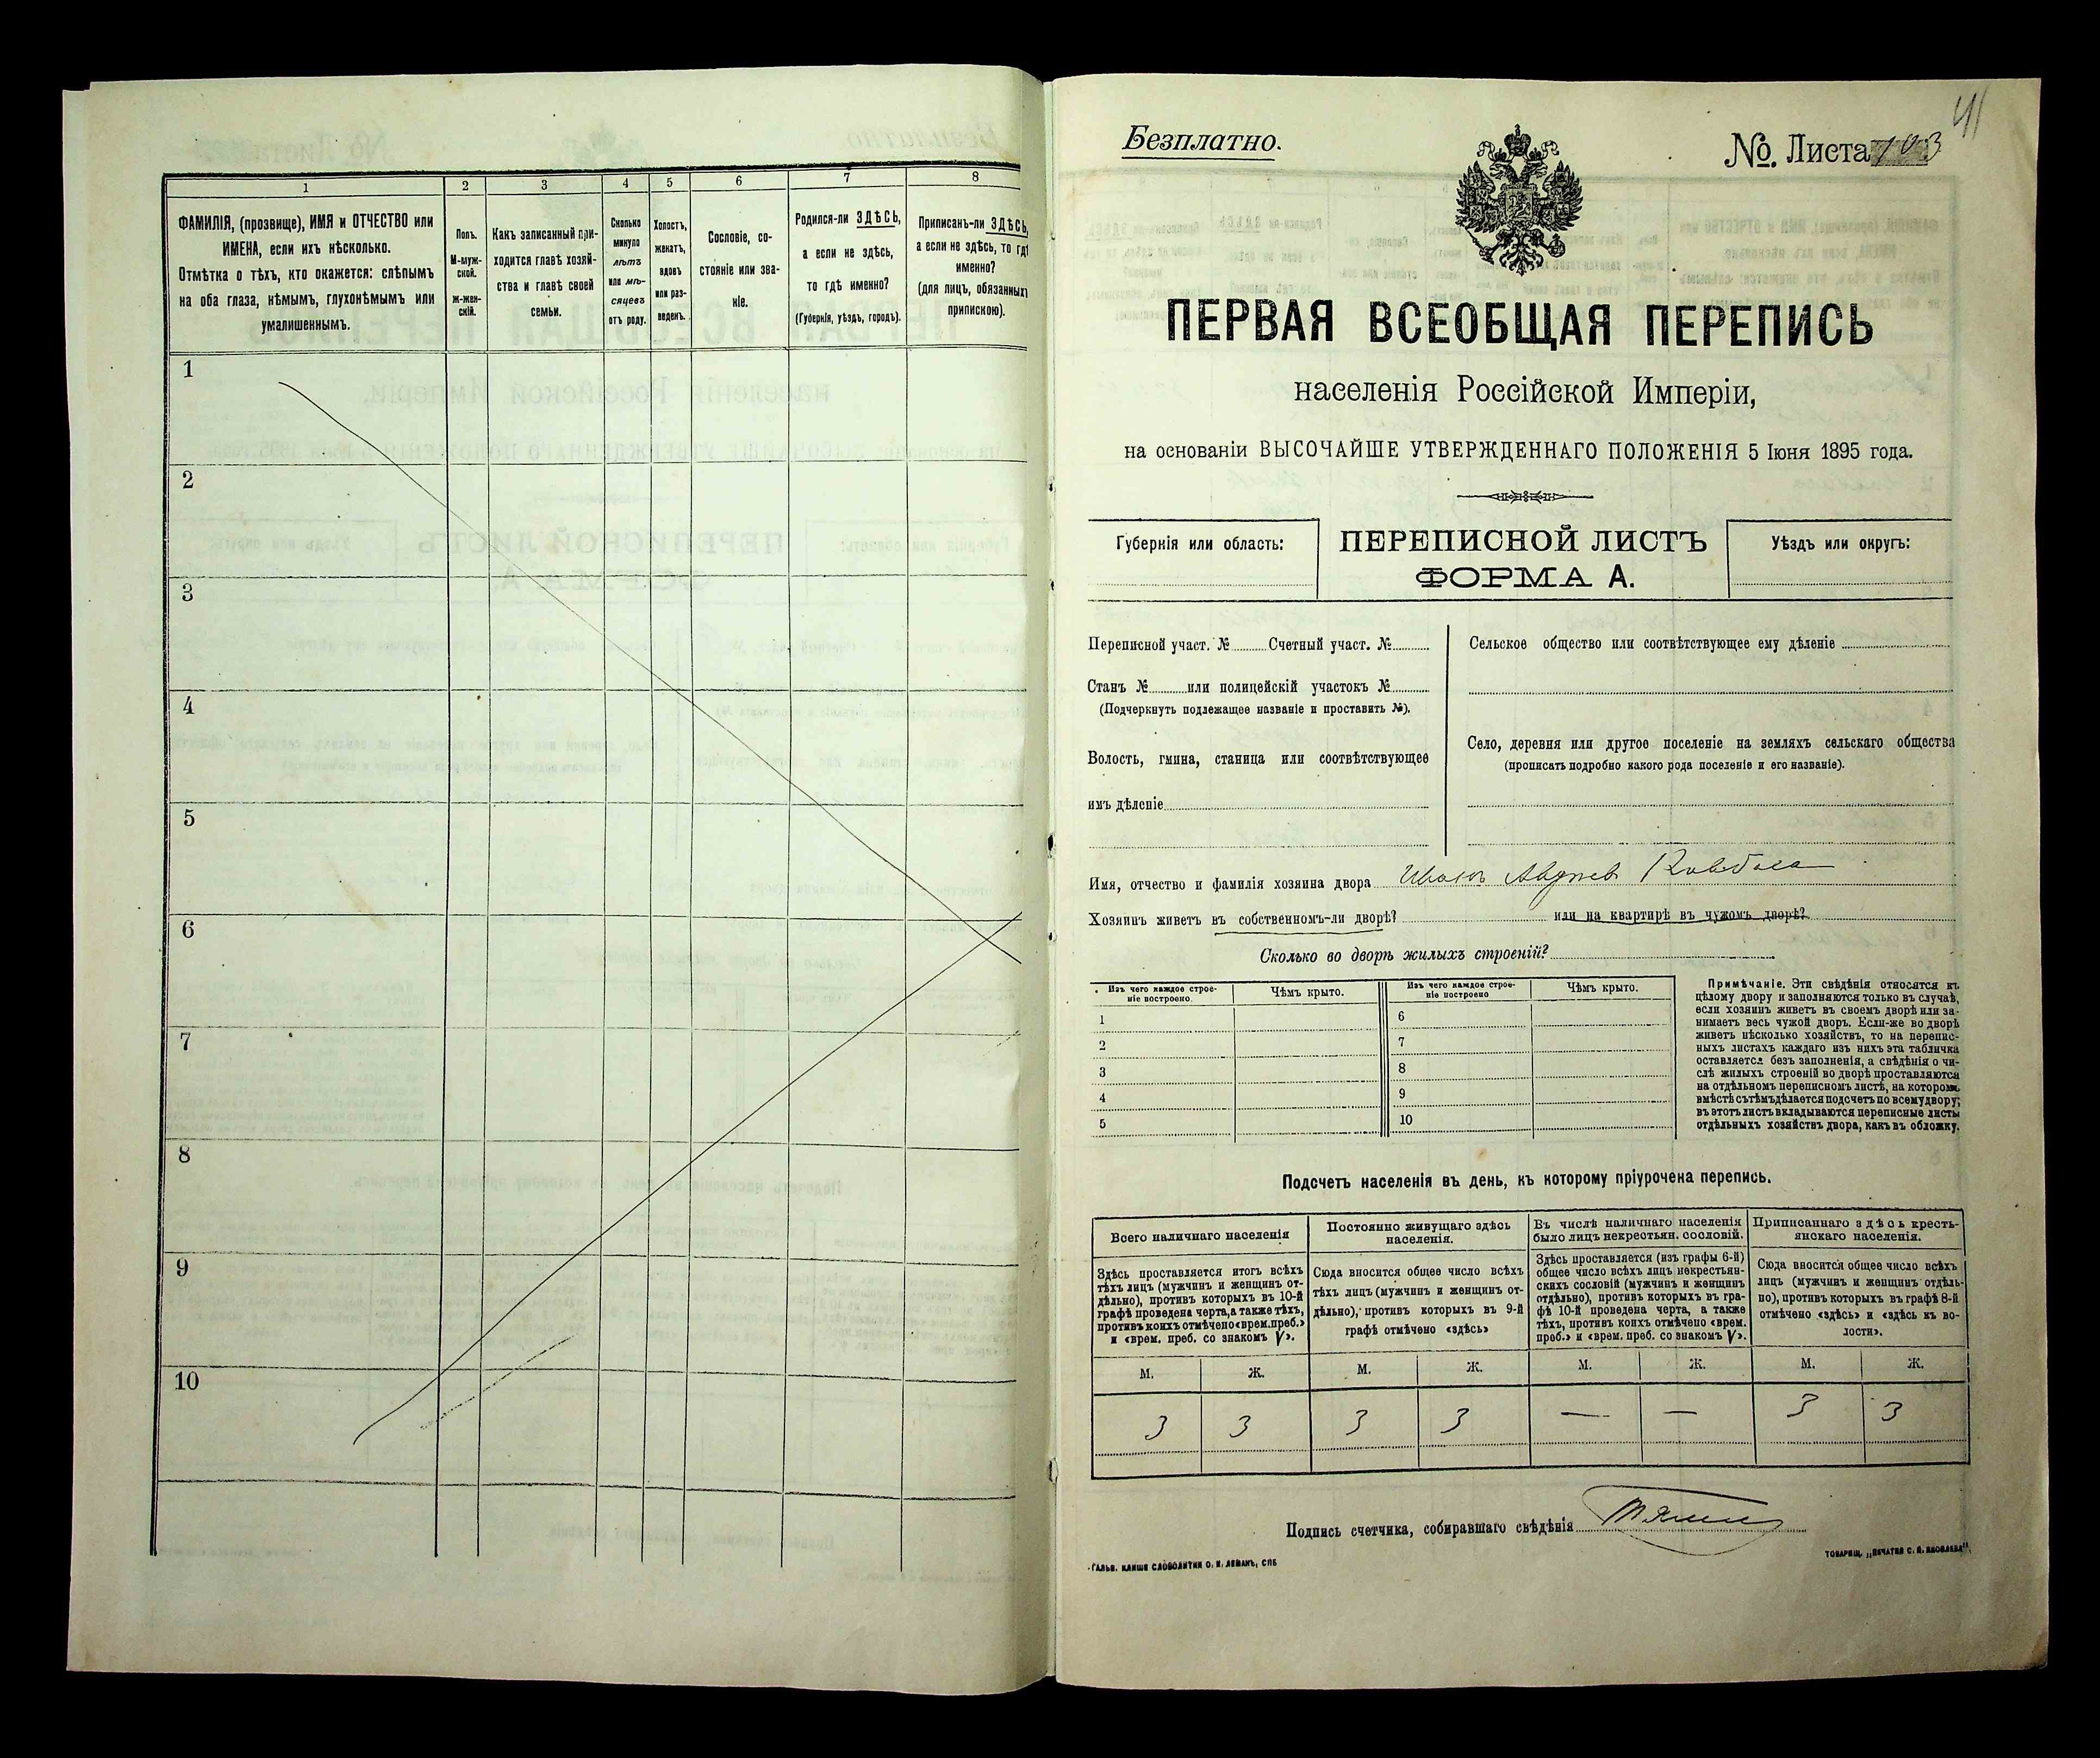 1 2 3 4 5 6 7 8
ФАМИЛІЯ, (прозвище), ИМЯ и ОТЧЕСТВО или
ИМЕНА, если ихъ нѣсколько.
Отмѣтка о тѣхъ, кто окажется: слѣпымъ
на оба глаза, нѣмымъ, глухонѣмымъ или
умалишеннымъ.
Полъ.
М-муж-
ской.
Ж-жен-
скій.
Какъ записанный при-
ходится главѣ хозяй-
ства и главѣ своей
семьи.
Сколько
минуло
лѣтъ
или мѣ-
сяцевъ
отъ роду.
Холостъ,
женатъ,
вдовъ
или раз-
веденъ.
Сословіе, со-
стояніе или зва-
ніе.
Родился-ли ЗДѢСЬ,
а если не здѣсь,
то гдѣ именно?
(Губернія, уѣздъ, городъ).
Приписанъ-ли ЗДѢСЬ,
а если не здѣсь, то гдѣ
именно?
(для лицъ, обязанныхъ
припискою).
1
2
3
4
5
6
7
8
9
10
41
Безплатно.
№ Листа 103
ПЕРВАЯ ВСЕОБЩАЯ ПЕРЕПИСЬ
населенія Россійской Имперіи,
на основаніи ВЫСОЧАЙШЕ УТВЕРЖДЕННАГО ПОЛОЖЕНІЯ 5 Іюня 1895 года.
Губернія или область:
ПЕРЕПИСНОЙ ЛИСТЪ
ФОРМА А.
Уѣздъ или округъ:
Переписной участ. № Счетный участ. №
Станъ № или полицейскій участокъ №
(Подчеркнуть подлежащее названіе и проставить №).
Волость, гмина, станица или соотвѣтствующее
имъ дѣленіе
Сельское общество или соотвѣтствующее ему дѣленіе
Село, деревня или другое поселеніе на земляхъ сельскаго общества
(прописать подробно какого рода поселеніе и его названіе).
Имя, отчество и фамилія хозяина двора
Хозяинъ живетъ въ собственномъ-ли дворѣ? или на квартирѣ въ чужомъ дворѣ?
Сколько во дворѣ жилыхъ строеній?
Изъ чего каждое строе-
ніе построено.
Чѣмъ крыто.
Изъ чего каждое строе-
ніе построено
Чѣмъ крыто.
1 6
2 7
3 8
4 9
5 10
Примѣчаніе. Эти свѣдѣнія относятся къ
цѣлому двору и заполняются только въ случаѣ,
если хозяинъ живетъ въ своемъ дворѣ или за-
нимаетъ весь чужой дворъ. Если-же во дворѣ
живетъ нѣсколько хозяйствъ, то на перепис-
ныхъ листахъ каждаго изъ нихъ эта табличка
оставляется безъ заполненія, а свѣдѣнія о чи-
слѣ жилыхъ строеній во дворѣ проставляются
на отдѣльномъ переписномъ листѣ, на которомъ
вмѣстѣ съ тѣмъ дѣлается подсчетъ по всему двору;
въ этотъ листъ вкладываются переписные листы
отдѣльныхъ хозяйствъ двора, какъ въ обложку.
Подсчетъ населенія въ день, къ которому пріурочена перепись.
Всего наличнаго населенія
Здѣсь проставляется итогъ всѣхъ
тѣхъ лицъ (мужчинъ и женщинъ от-
дѣльно), противъ которыхъ въ 10-й
графѣ проведена черта, а также тѣхъ,
противъ коихъ отмѣчено «врем. преб.»
и «врем. преб. со знакомъ V».
Постоянно живущаго здѣсь
населенія.
Сюда вносится общее число всѣхъ
тѣхъ лицъ (мужчинъ и женщинъ от-
дѣльно), противъ которыхъ въ 9-й
графѣ отмѣчено «здѣсь»
Въ числѣ наличнаго населенія
было лицъ некрестьян. сословій.
Здѣсь проставляется (изъ графы 6-й)
общее число всѣхъ лицъ некрестьян-
скихъ сословій (мужчинъ и женщинъ
отдѣльно), противъ которыхъ въ гра-
фѣ 10-й проведена черта, а также
тѣхъ, противъ коихъ отмѣчено «врем.
преб.» и «врем. преб. со знакомъ V».
Приписаннаго здѣсь кресть-
янскаго населенія.
Сюда вносится общее число всѣхъ
лицъ (мужчинъ и женщинъ отдѣль-
но), противъ которыхъ въ графѣ 8-й
отмѣчено «здѣсь» и «здѣсь къ во-
лости».
М. Ж. М. Ж. М. Ж. М. Ж.
3 3 3 3 — — 3 3
Подпись счетчика, собиравшаго свѣдѣнія
ГАЛЬВ. КЛИШЕ СЛОВОЛИТНИ О. И. ЛЕМАНЪ, СПБ
ТОВАРИЩ. „ПЕЧАТНЯ С. П. ЯКОВЛЕВА“.